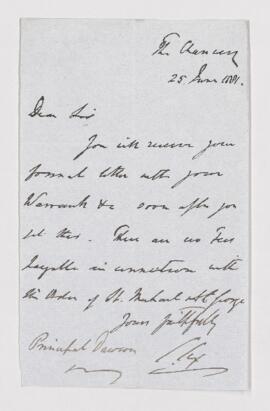 The Chancery
25 June 1881.
Dear Sir
You will receive your
formal letter with your
Warrant &c soon after you
get this. There are no Fees
payable in connection with
the Order of St. Michael & St George
Yours faithfully
Principal Dawson